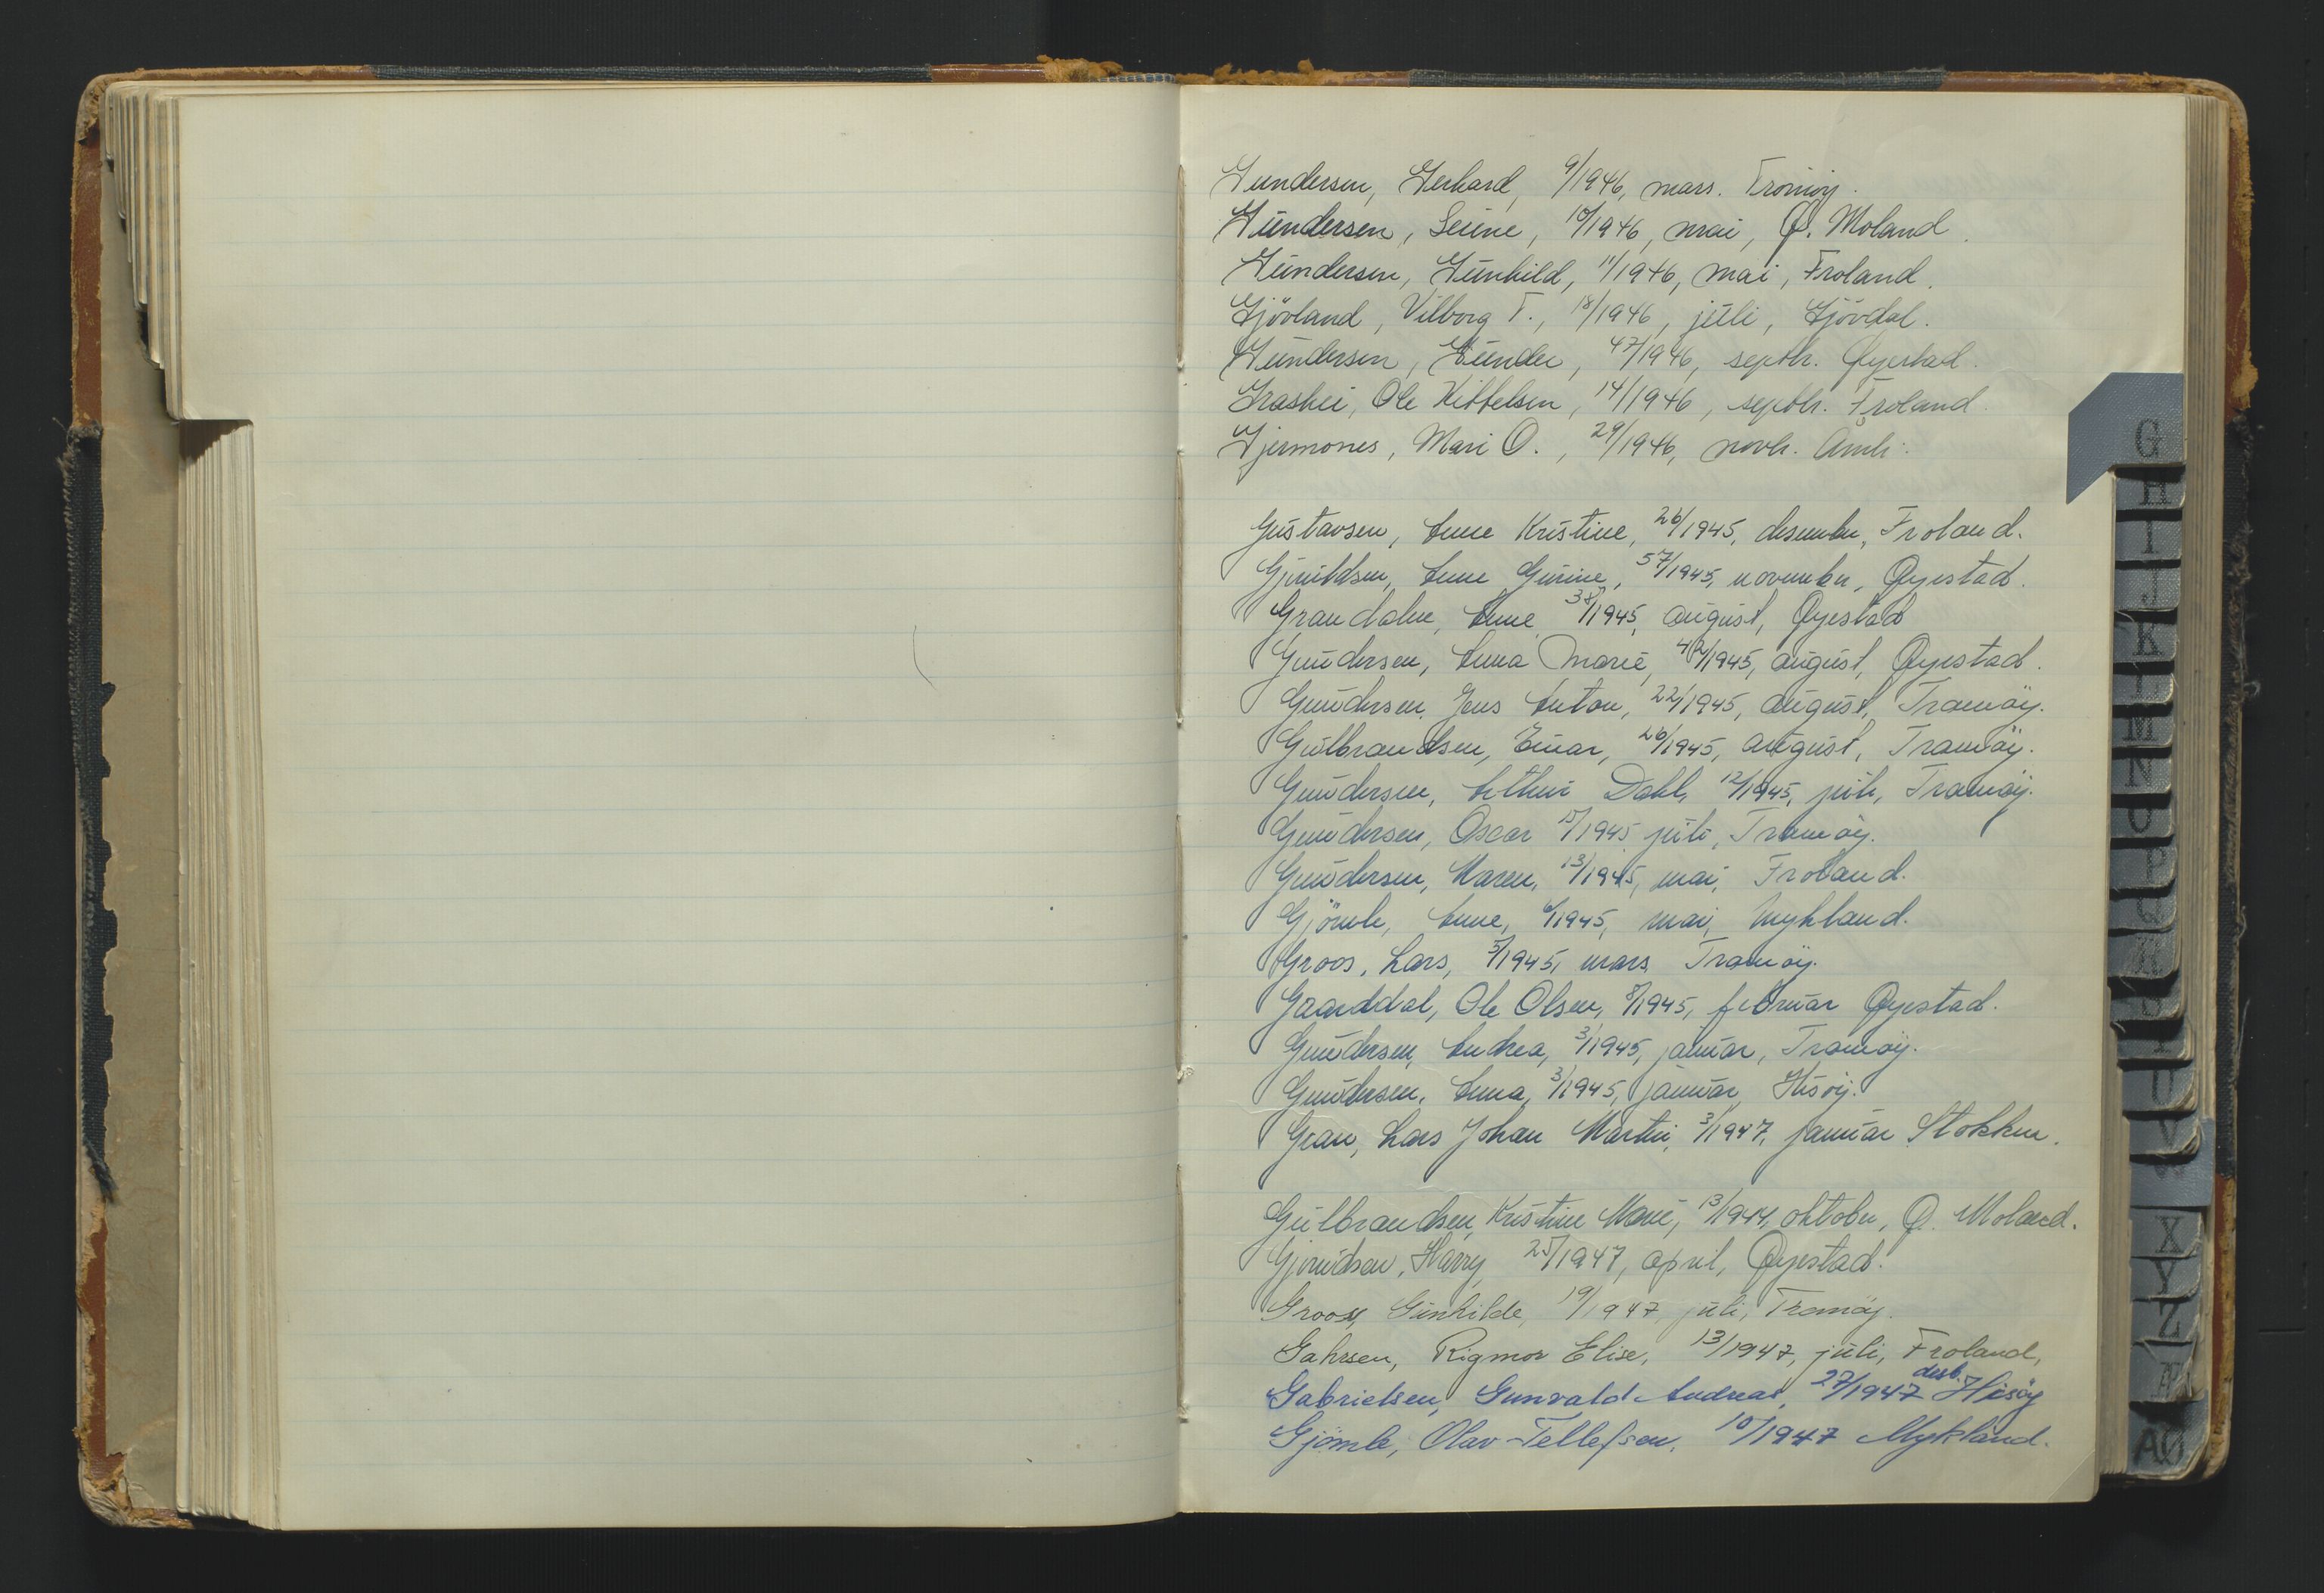 Gundersen, Gerhard, 9/1946, mars. Tromøy.
Gundersen, Seline, 10/1946, mai, Ø. Moland.
Gundersen, Gunhild, 11/1946, mai, Froland.
Gjövland, Vilborg T., 18/1946, juli, Gjövdal.
Gundersen, Gunder, 47/1946, septbr. Øyestad.
Graskei, Ole Kittelsen, 14/1946, septbr. Froland.
Gjermones, Mari O., 29/1946, novbr. Åmli.
Gustavsen, Anne Kristine, 26/1945, desember, Froland.
Anne Gurine, 57/1945, november, Øyestad.
Grandalen, Anne 38/1945, august, Øyestad
Gundersen, Anna Marie, /1945, august, Øyestad.
Gundersen, Jens Anton, 22/1945, august, Tromöy.
Gulbrandsen, Einar, 26/1945, august, Tromöy.
Gundersen, Arthur Dahl, 12/1945, juli, Tromöy.
Gundersen, Oscar 15/1945 juli, Tromöy.
Gundersen, Maren, 13/1945, mai, Froland.
Gjömle, Anne, 6/1945, mai, Mykland.
Groos, Lars, 5/1945, mars Tromöy.
Gaarddal, Ole Olsen, 8/1945, februar Øyestad.
Gundersen, Andrea, 3/1945, januar, Tromöy.
Gundersen, Anna, 3/1945, januar, Hisöy.
Gran, Lars Johan Martin, 3/1947, januar Stokken.
Gulbrandsen, Kristine Marie, 13/1944, oktober, Ø. Moland.
Gjeruldsen, Harry, 25/1947, april, Øyestad.
Groos, Gunhilde, 19/1947, juli, Tromöy.
Gahrsen, Rigmor Elise, 13/1947, juli, Froland,
Gabrielsen, Gunvald Andreas, 27/1947 desb. Hisöy
Gjömle, Olav Tellefsen, 10/1947 Mykland.
G
H
I
J
K
L
M
N
O
P
Q
R
S
T
U
V
W
X
Y
Z
Æ
AØ